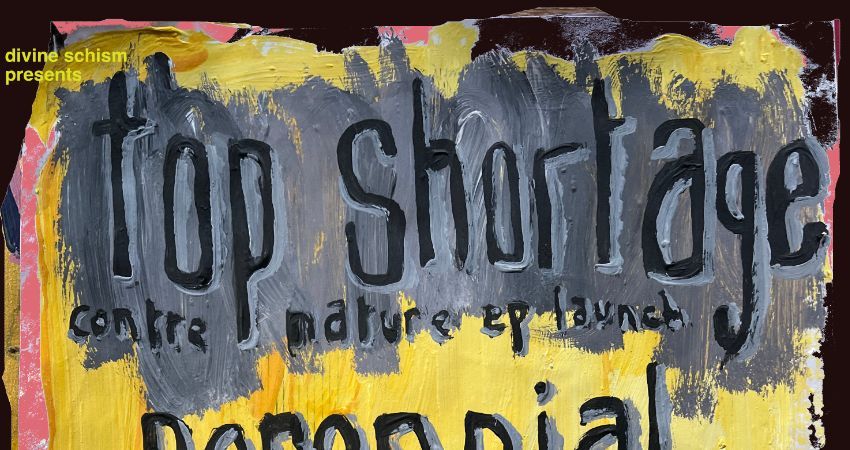 divine schism
presents
top shortage
contre nature ep launch
perennial